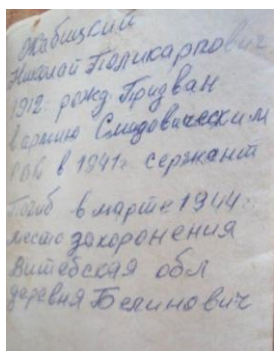 Жабицкий
Николай Поликарпович
1912 рожд. Призван
в армию Смидовическим
РВК в 1941г сержант
Погиб в марте 1944г.
место захоронения
Витебская обл
деревня Белинович